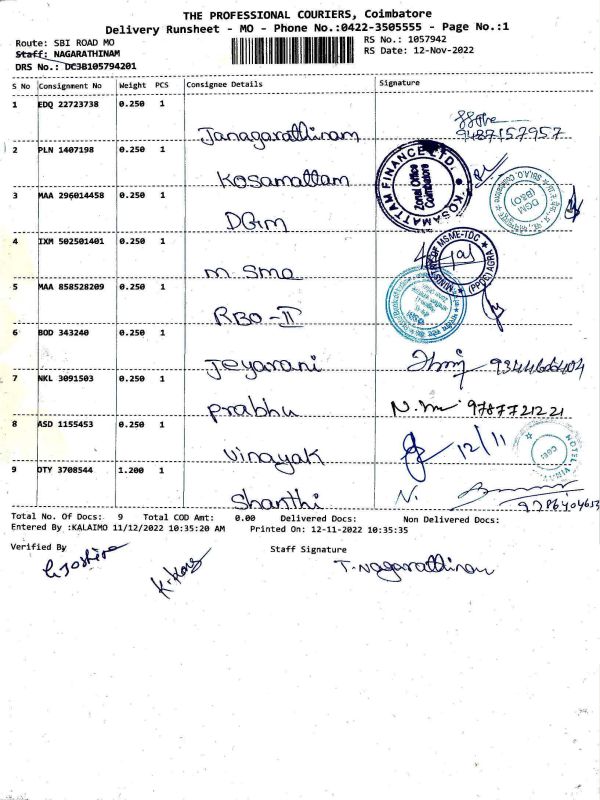 THE PROFESSIONAL COURIERS, Coimbatore
Delivery Runsheet - MO - Phone No.:0422-3505555 - Page No.:1
Route: SBI ROAD MO
RS No.: 1057942
Staff: NAGARATHINAM
RS Date: 12-Nov-2022
DRS No.: DC3B105794201
S No Consignment No Weight PCS Consignee Details Signature
1 EDQ 22723738 0.250 1
Janagarathinam 9487157957
2 PLN 1407198 0.250 1
Kosamattam
KOSAMATTAM FINANCE LTD. Zonal Office Coimbatore
3 MAA 296014458 0.250 1
DGM
DGM (B&O)
4 IXM 502501401 0.250 1
M.Sme
MINISTRY OF MSME-TDC (PPDC) AGRA
5 MAA 858528209 0.250 1
RBO-II
6 BOD 343240 0.250 1
Jeyarani
7 NKL 3091503 0.250 1
Prabhu 9787721221
8 ASD 1155453 0.250 1
Vinayak 12/11
9 OTY 3708544 1.200 1
Shanthi N.
Total No. Of Docs: 9 Total COD Amt: 0.00 Delivered Docs: Non Delivered Docs:
Entered By :KALAIMO 11/12/2022 10:35:20 AM Printed On: 12-11-2022 10:35:35
Verified By
Staff Signature
T. Nagarathinam